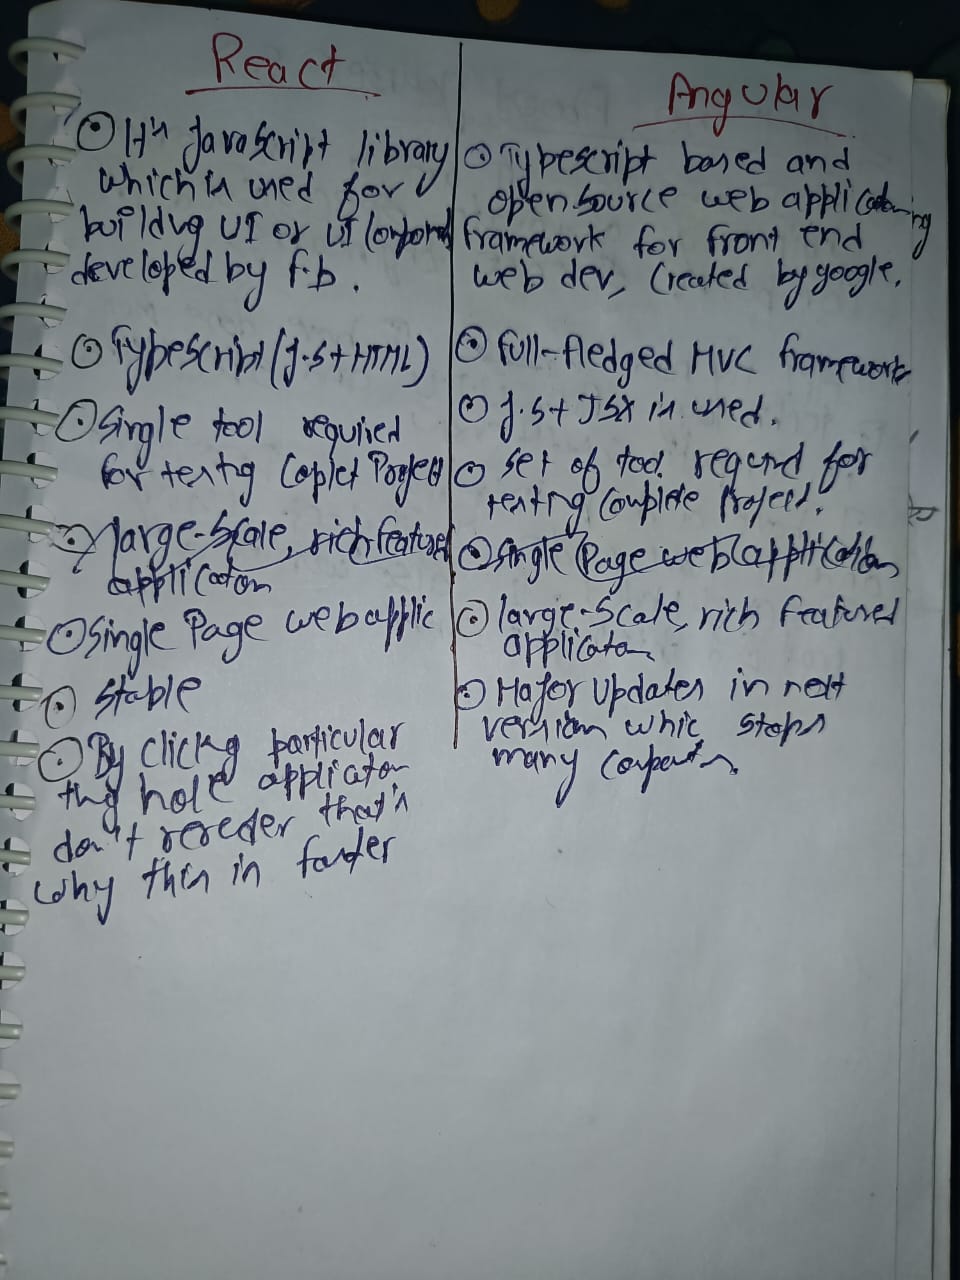 React
⊙ It's JavaScript library
which is used for
buildng UI or UI Componet
developed by f.b.
⊙ TypeScript (J.S + HTML)
⊙ Single tool required
for testng Coplet Project
⊙ large-Scale, rich featured
applicaton
⊙ Single Page web applic
⊙ Stable
⊙ By clickg particular
thg hole applicaton
don't rereder that's
why this is faster
Angular
⊙ Typescript based and
open source web application
framework for front end
web dev, Created by google.
⊙ full-fledged MVC framework
⊙ J.S + JSX is used.
⊙ Set of tool requrd for
testing complete Project.
⊙ Single Page web application
⊙ large-Scale, rich featured
applicaton
⊙ Major Updates in next
version whic stops
many